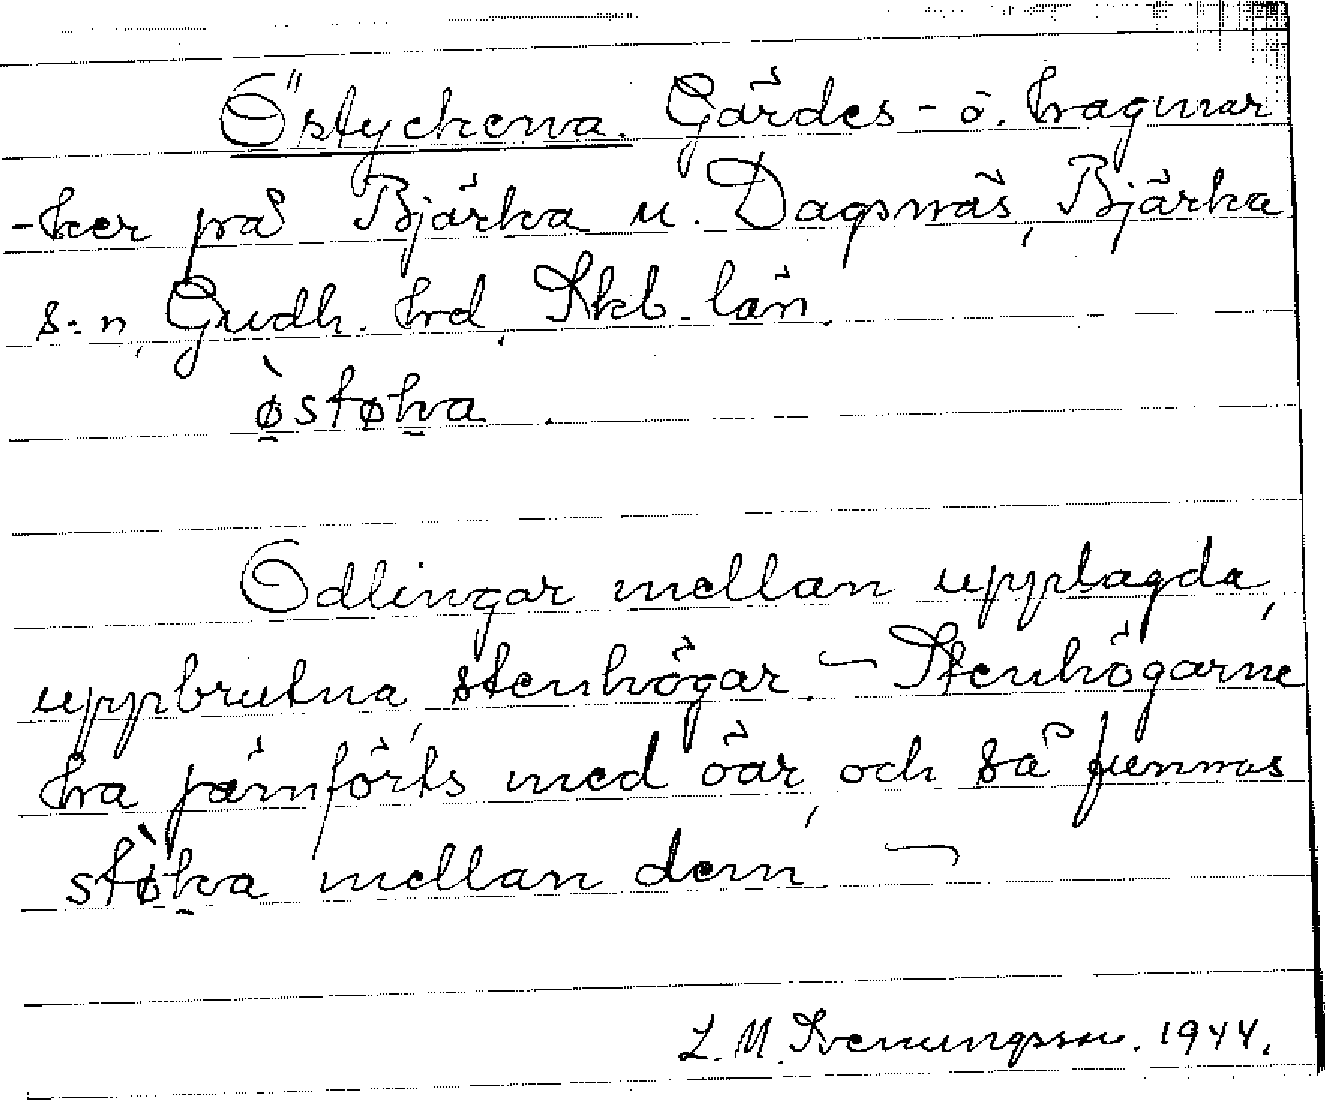 Östyckena. Gärdes- o. hagmar
-ker på Bjärka u. Dagsnäs, Bjärka
s:n, Gudh. hrd, Skb. län.
ø̀støka.
Odlingar mellan upplagda,
uppbrutna, stenhögar. – Stenhögarne
ha jämförts med öar, och så funnas
stø̀ka mellan dem, –
L. M. Svenungsson. 1944.